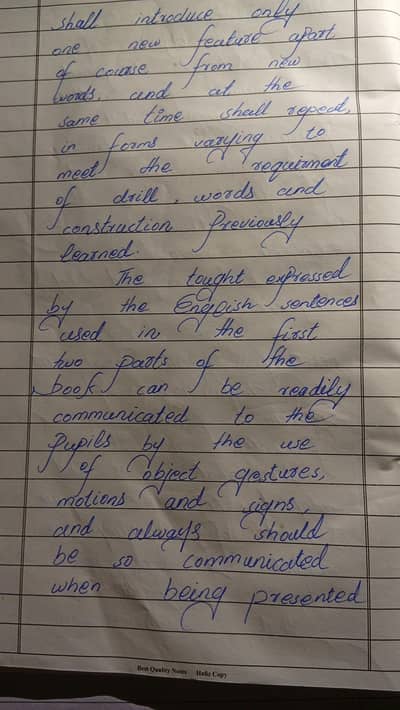 shall introduce only
one new feature apart
of course from new
words, and at the
same time shall repeat,
in forms varying to
meet the requirment
of drill, words and
construction previously
learned.
The tought expressed
by the English sentences
used in the first
two parts of the
book can be readily
communicated to the
pupils by the use
of object gestures,
motions and signs,
and always should
be so communicated
when being presented
Best Quality Notes Hafiz Copy